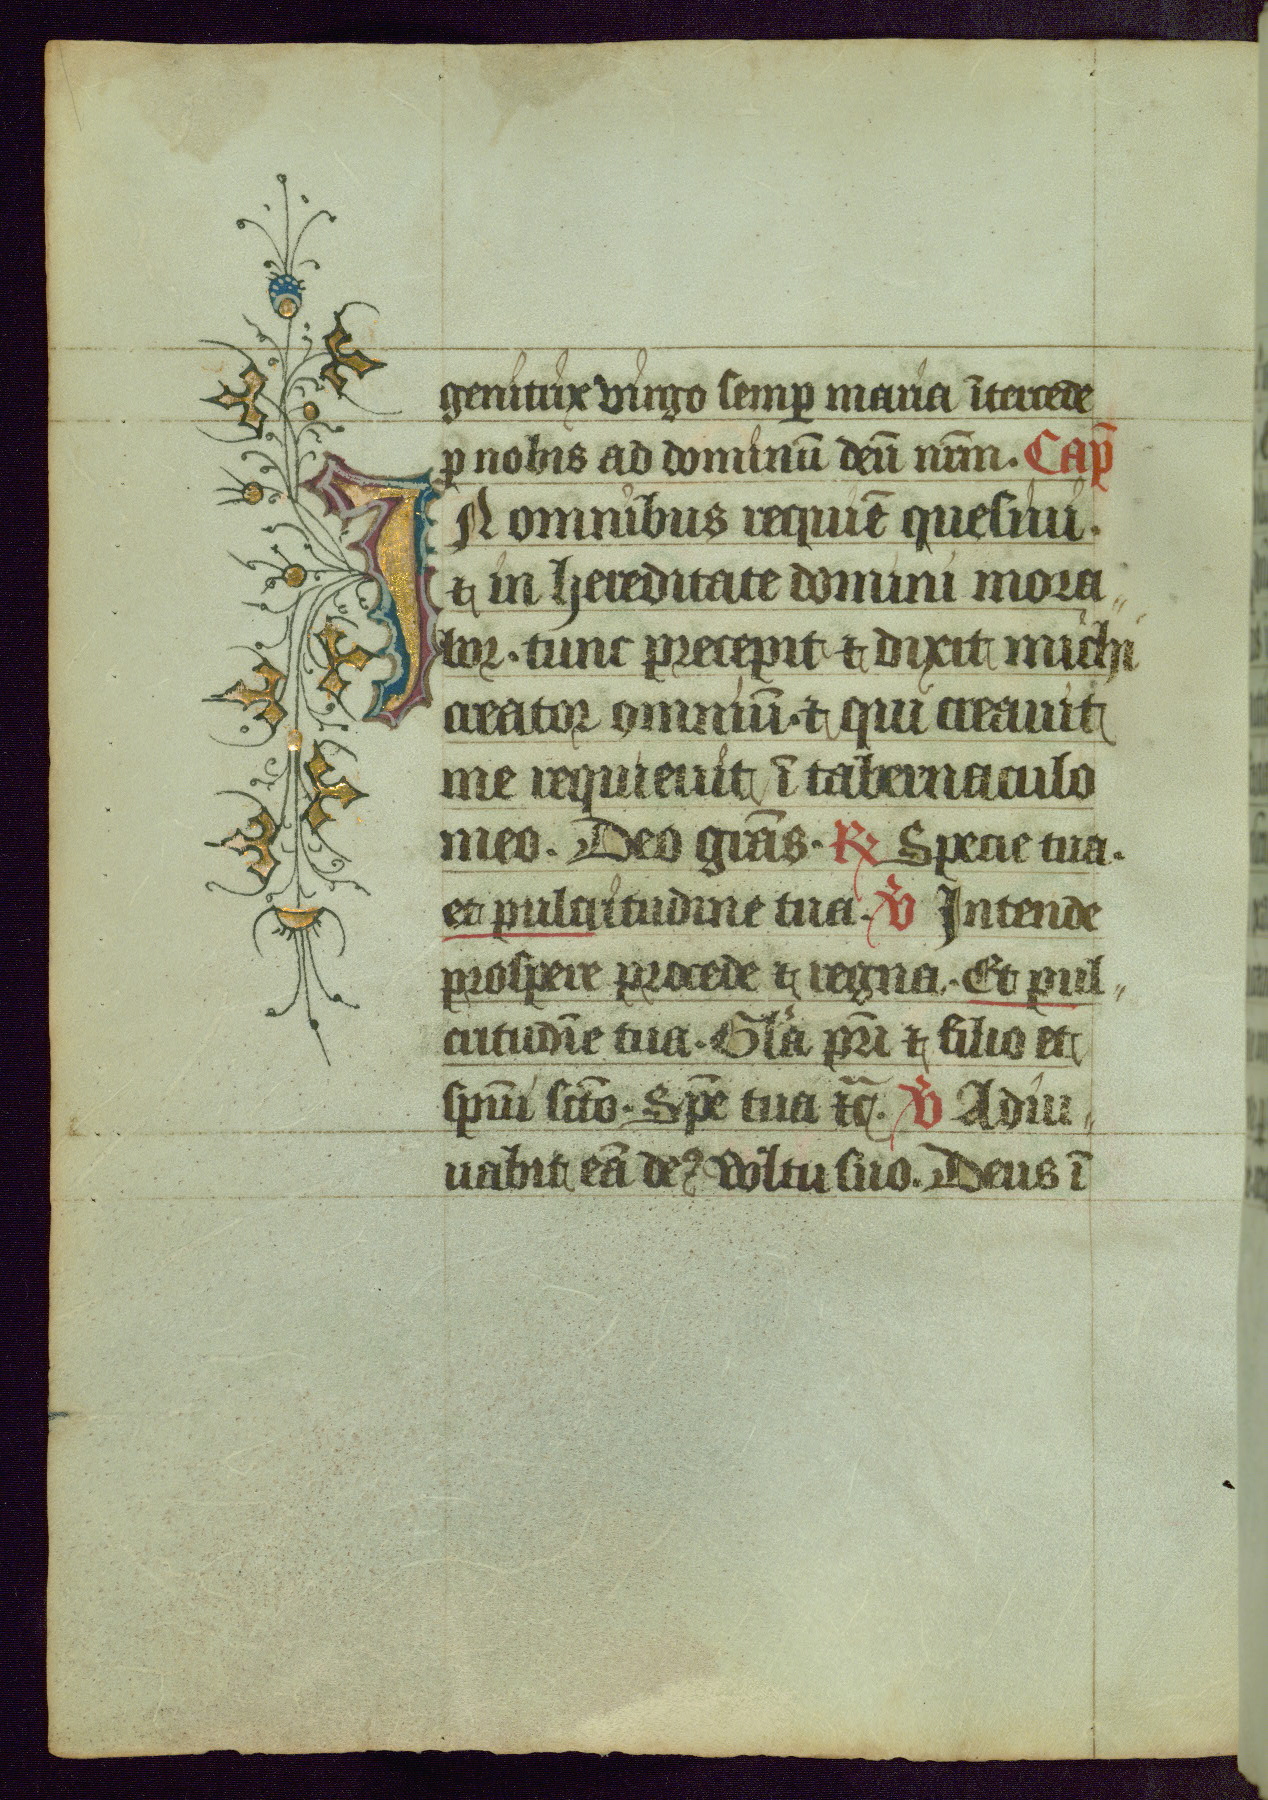 genitrix virgo semp̲ maria ītercede
p nobis ad dominū deū nr̄m. Cap̄
IN omnibus requiē quesiui.
⁊ in hereditate domini mora„
bor. tunc precepit ⁊ dixit michi
creator omniū. ⁊ qui creauit
me requieuit ī tabernaculo
meo. Deo grās. ℟ Specie tua.
et pulcritudine tua. ℣ Intende
prospere procede ⁊ regna. Et pul„
critudīe tua. Gl̄a pr̄i ⁊ filio et
spūi sc̄to. Sp̄e tua ⁊c̄. ℣ Adiu„
uabit eā deꝰ voltu suo. Deus ī